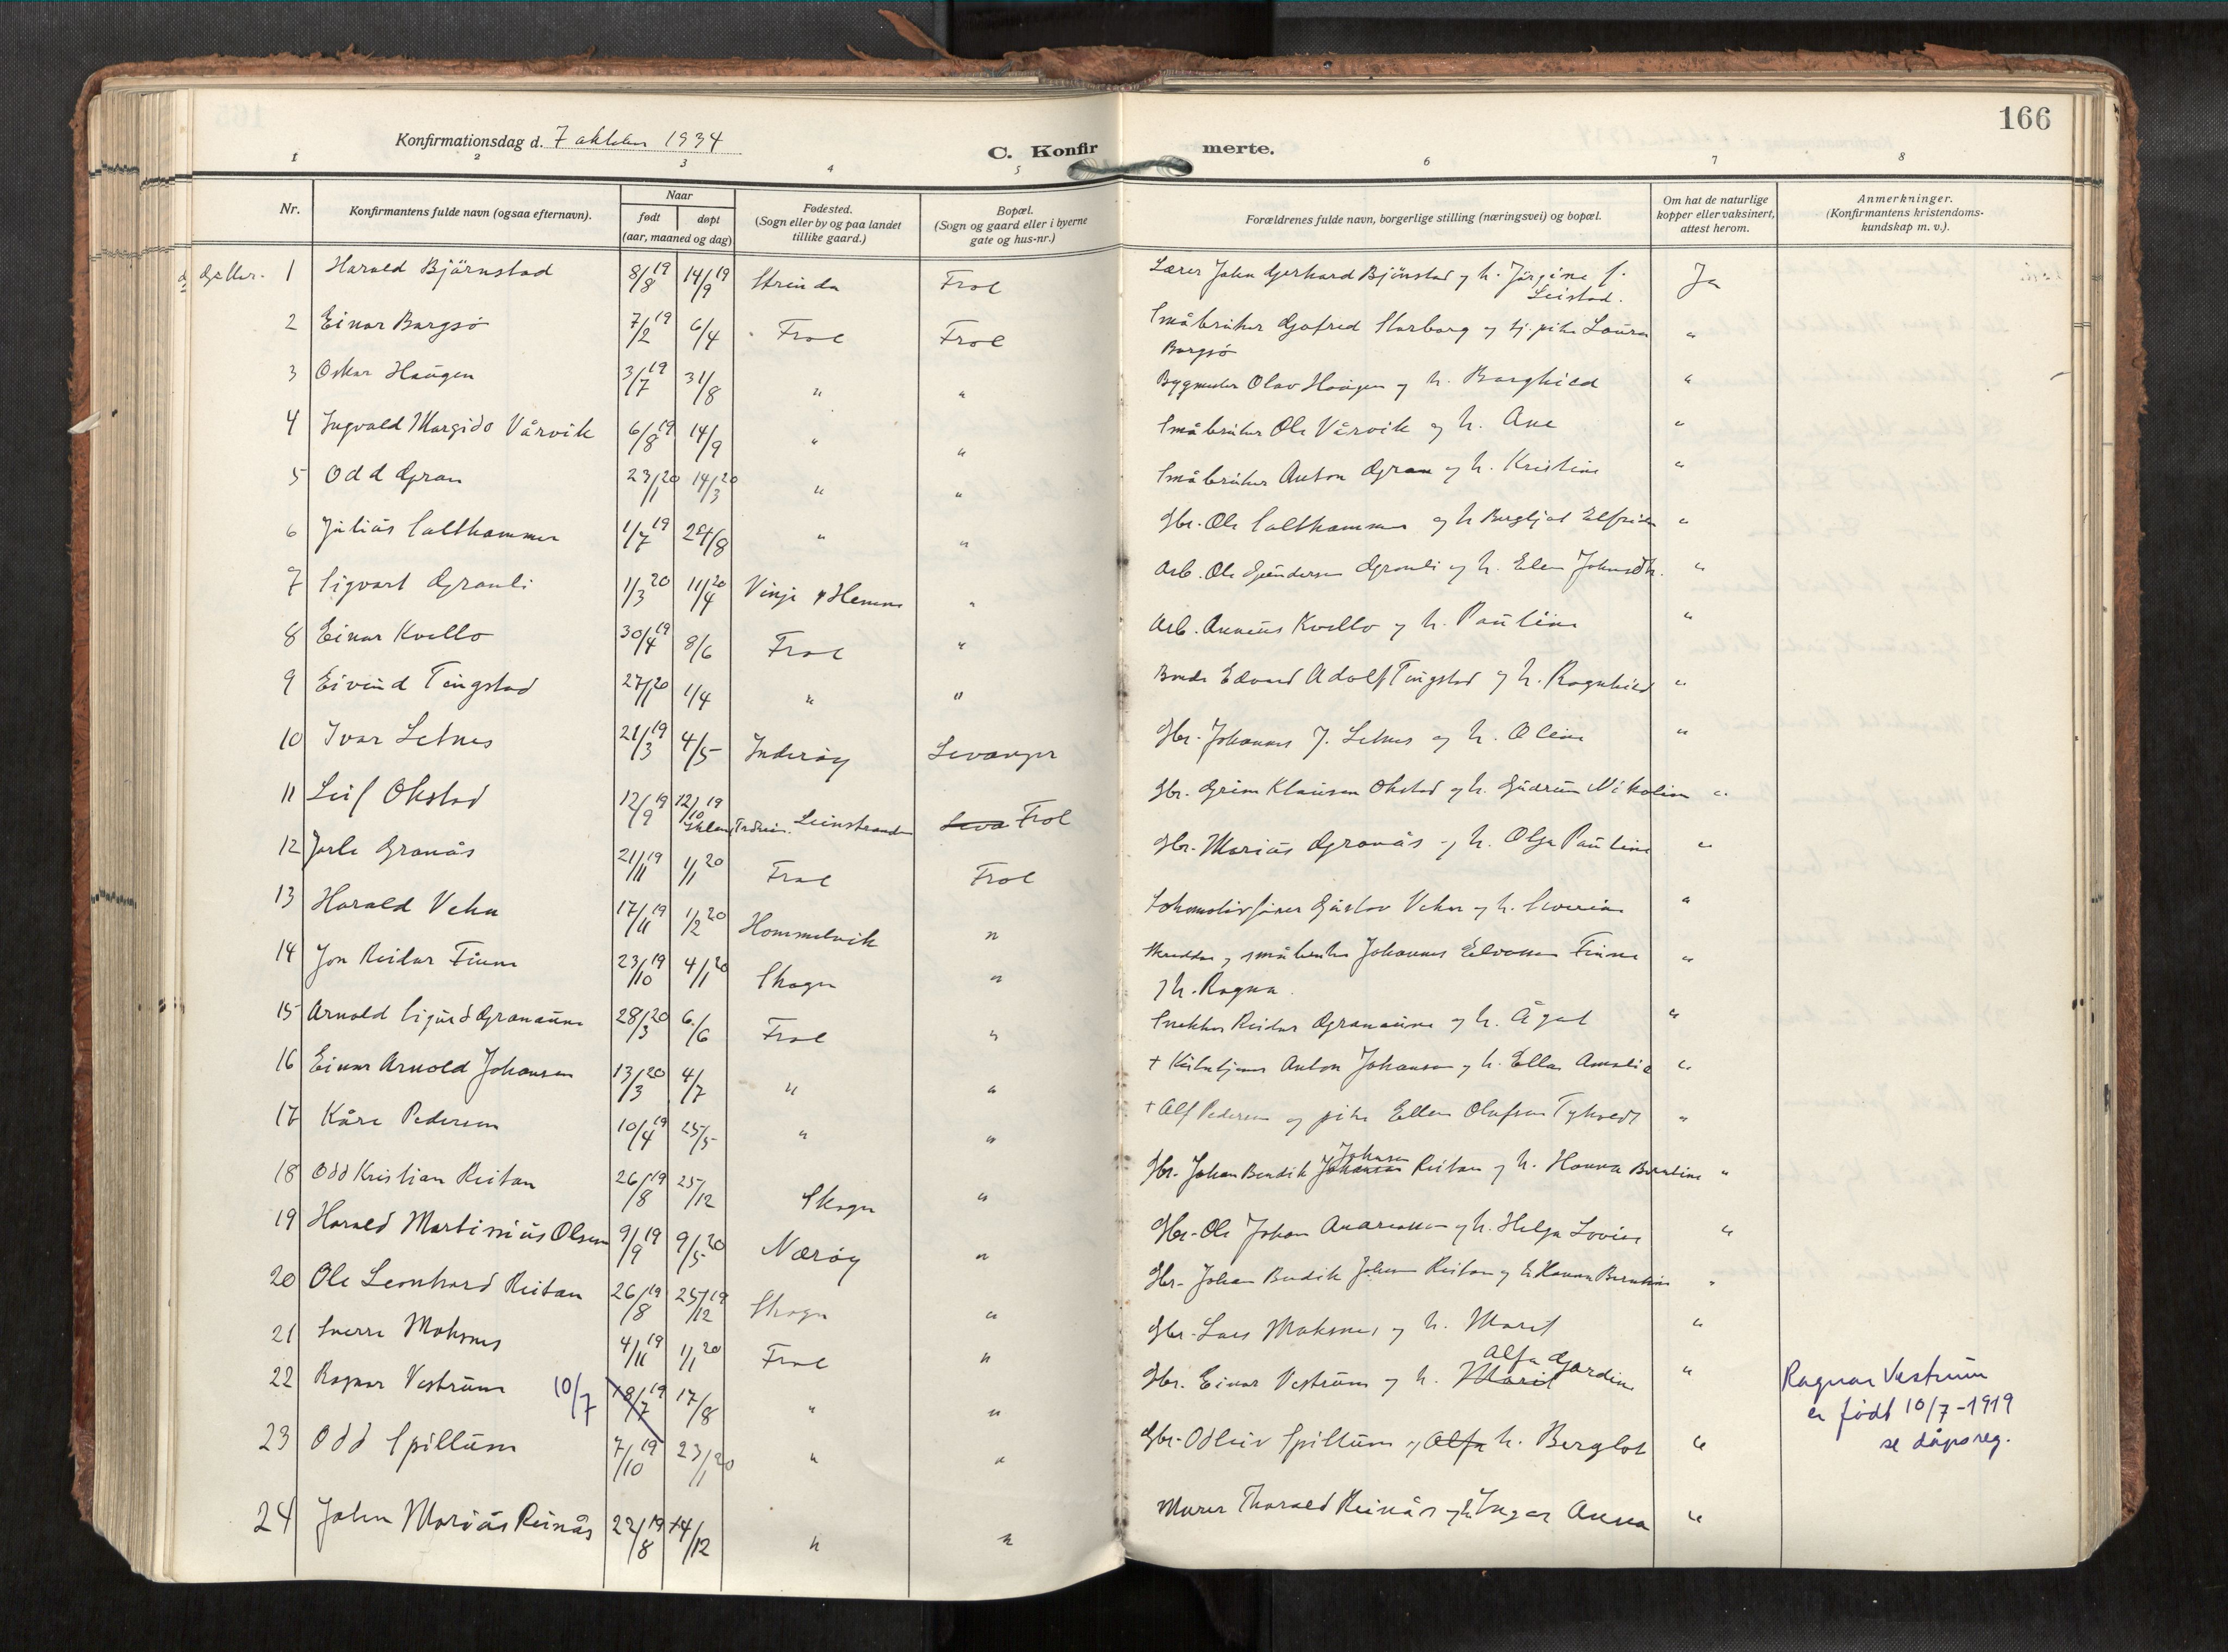 166
Konfirmationsdag d. 7 oktober 1934
C. Konfirmerte.
1 2 3 4 5 6 7 8
Nr.
Konfirmantens fulde navn (ogsaa efternavn).
Naar
født døpt
(aar, maaned og dag)
Fødested.
(Sogn eller by og paa landet
tillike gaard.)
Bopæl.
(Sogn og gaard eller i byerne
gate og hus-nr.)
Forældrenes fulde navn, borgerlige stilling (næringsvei) og bopæl.
Om hat de naturlige
kopper eller vaksinert,
attest herom.
Anmerkninger.
(Konfirmantens kristendoms-
kundskap m. v.).
1 Harald Bjørnstad 8/8 19 14/9 19 Strinda Frol Lærer John Gerhard Bjørnstad og h. Jørgine f. Ja
Leistad.
2 Einar Borgsø 7/2 19 6/4 Frol Frol Småbruker Gjøfred Storborg og tj. pike Laura "
Borgsø
3 Oskar Haugen 3/7 19 31/8 " " Bygmester Olav Haugen og h. Borghild "
4 Ingvald Margido Vårvik 6/8 19 14/9 " " Småbruker Ole Vårvik og h. Ane "
5 Odd Gran 23/1 20 14/3 20 " " Småbruker Anton Gran og h. Kristine "
6 Julius Salthammer 1/7 19 24/8 " " Gbr. Ole Salthammer og h. Bergljot Elfrida "
7 Sigvart Granli 1/3 20 11/4 20 Vinje Hemne " Arb. Ole Gundersen Granli og h. Elen Johnsdtr. "
8 Einar Kvello 30/4 19 8/6 Frol " Arb. Anneus Kvello og h. Pauline "
9 Eivind Tingstad 27/1 20 1/4 " " Bonde Edvard Adolf Tingstad og h. Ragnhild "
10 Ivar Letnes 21/3 19 4/5 Inderøy Levanger Gbr. Johannes J. Letnes og h. Oline "
11 Leif Okstad 12/9 19 12/10 19 Leinstranda Leva Frol Gbr. Grim Klausen Okstad og h. Gudrun Nikoline "
12 Jarle Granås 21/11 19 1/1 20 Frol Frol Gbr. Marius Granås og h. Olga Pauline "
13 Harald Vehn 17/11 19 1/2 20 Hommelvik " Lokomotivfører Gustav Vehn og h. Severine "
14 Jon Reidar Finne 23/10 19 4/1 20 Skogn " Skredder og småbruker Johannes Finne "
og h. Ragna.
15 Arnold Sigurd Granaune 28/3 20 6/6 Frol " Snekker Reidar Granaune og h. Ågot "
16 Einar Arnold Johansen 13/3 20 4/7 " " + Anton Johansen og h. Ella Amalie "
17 Kåre Pedersen 10/4 19 25/5 " " + Alf Pedersen og pike Ellen Olufsen Tykvedt "
18 Odd Kristian Reitan 26/8 19 25/12 Skogn " Gbr. Johan Bendik Johansen Johnsen Reitan og h. Hanna Berntine "
19 Harald Martinius Olsen 9/9 19 9/5 20 Nærøy " Gbr. Ole Johan Andreassen og h. Helga Lovise "
20 Ole Leonhard Reitan 26/8 19 25/12 19 Skogn " Gbr. Johan Bendik Johnsen Reitan og h. Hanna Berntine "
21 Sverre Moksnes 4/11 19 1/1 20 Frol " Gbr. Lars Moksnes og h. Marit "
22 Ragnar Vestrum 10/7 18/7 19 17/8 " " Gbr. Einar Vestrum og h. Marit Alfa Gjardine "
Ragnar Vestrum
er født 10/7-1919
se dåpsreg.
23 Odd Spillum 7/10 19 23/1 20 " " Gbr. Odleiv Spillum og Alfa h. Berglot "
24 John Marius Reinås 22/8 19 14/12 " " Murer Thorald Reinås og h. Inger Anna "